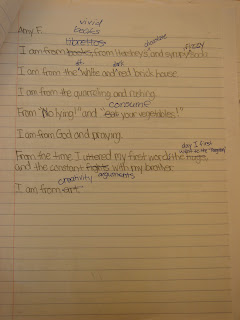 Amy F.
vivid
books
libraries
chocolate
fizzy
I am from books, from Hershey's and syrupy soda.
of dark
I am from the white and red brick house.
I am from the quarreling and resting.
consume
From "No lying!" and "eat your vegetables!"
I am from God and praying.
day I first went to the
From the time I uttered my first word the
and the constant fights with my brother.
creativity arguments
I am from art